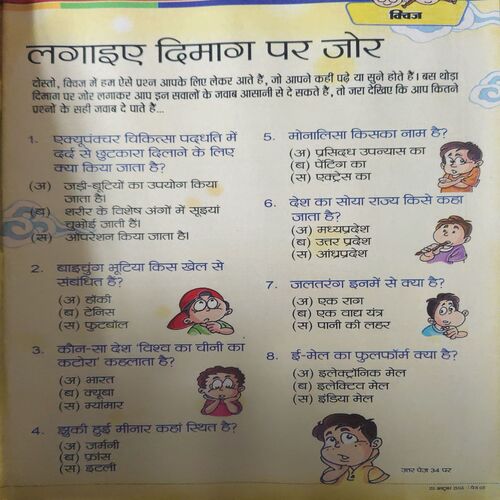 क्विज
लगाइए दिमाग पर जोर
दोस्तो, क्विज में हम ऐसे प्रश्न आपके लिए लेकर आते हैं, जो आपने कहीं पढ़े या सुने होते हैं। बस थोड़ा
दिमाग पर जोर लगाकर आप इन सवालों के जवाब आसानी से दे सकते हैं, तो जरा देखिए कि आप कितने
प्रश्नों के सही जवाब दे पाते हैं...
1. एक्यूपंक्चर चिकित्सा पद्धति में
दर्द से छुटकारा दिलाने के लिए
क्या किया जाता है?
(अ) जड़ी-बूटियों का उपयोग किया
जाता है।
(ब) शरीर के विशेष अंगों में सूइयां
चुभोई जाती हैं।
(स) ऑपरेशन किया जाता है।
2. बाइचुंग भूटिया किस खेल से
संबंधित हैं?
(अ) हॉकी
(ब) टेनिस
(स) फुटबॉल
3. कौन-सा देश 'विश्व का चीनी का
कटोरा' कहलाता है?
(अ) भारत
(ब) क्यूबा
(स) म्यांमार
4. झुकी हुई मीनार कहां स्थित है?
(अ) जर्मनी
(ब) फ्रांस
(स) इटली
5. मोनालिसा किसका नाम है?
(अ) प्रसिद्ध उपन्यास का
(ब) पेंटिंग का
(स) एक्ट्रेस का
6. देश का सोया राज्य किसे कहा
जाता है?
(अ) मध्यप्रदेश
(ब) उत्तर प्रदेश
(स) आंध्रप्रदेश
7. जलतरंग इनमें से क्या है?
(अ) एक राग
(ब) एक वाद्य यंत्र
(स) पानी की लहर
8. ई-मेल का फुलफॉर्म क्या है?
(अ) इलेक्ट्रॉनिक मेल
(ब) इलेक्टिव मेल
(स) इंडिया मेल
उत्तर पेज 34 पर